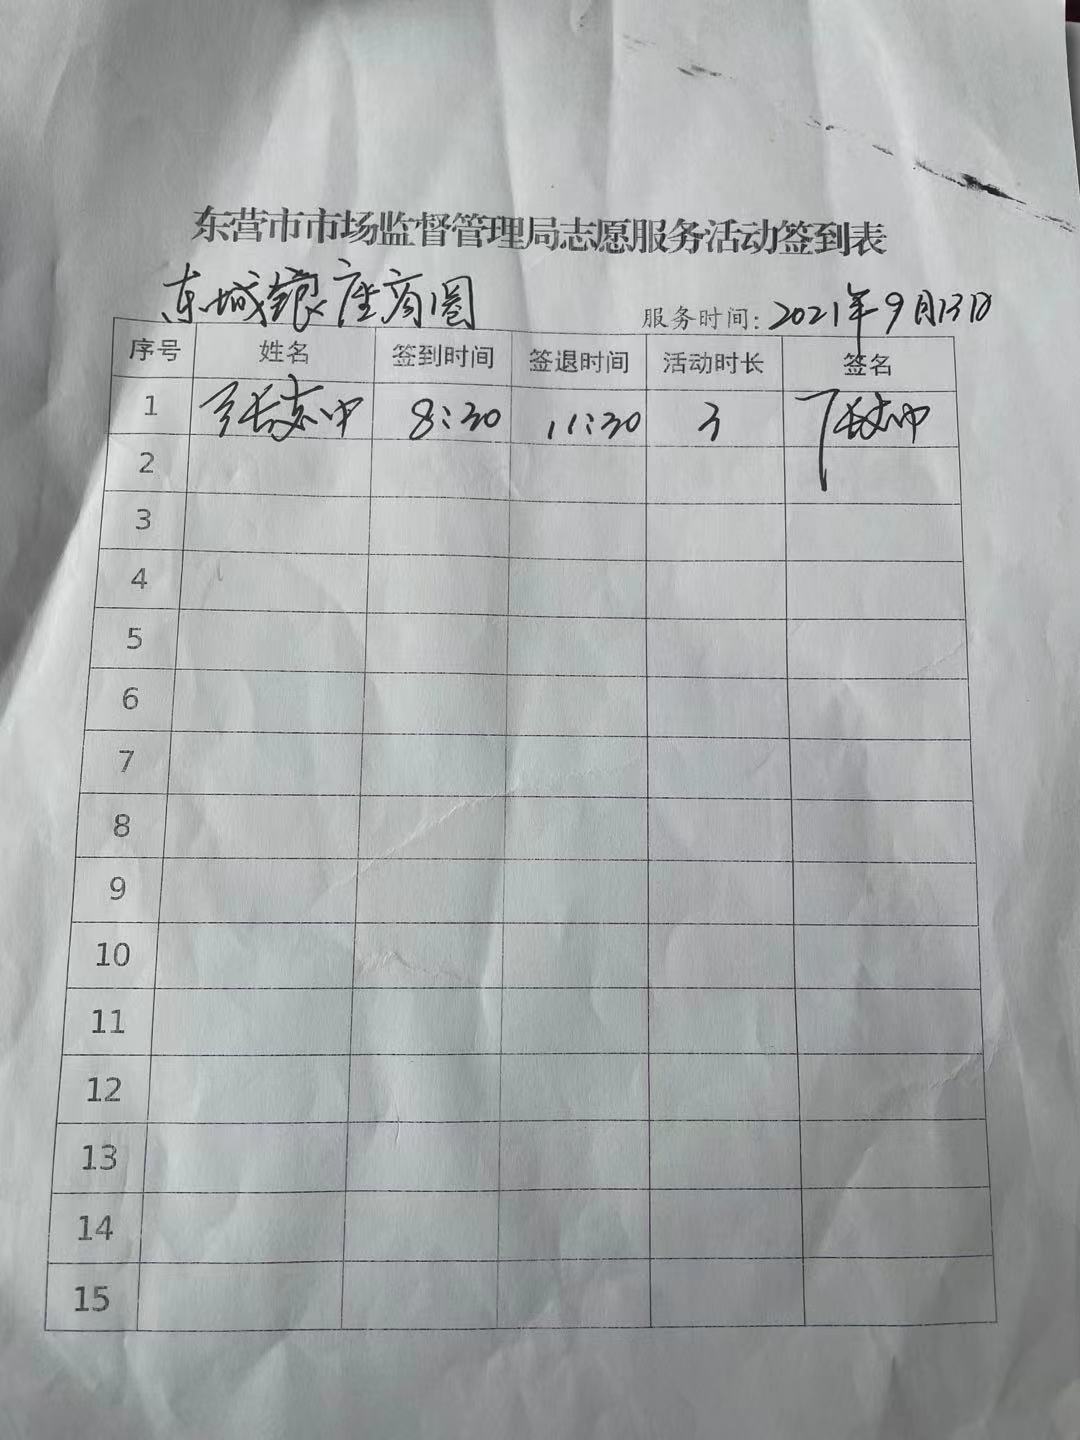 东营市市场监督管理局志愿服务活动签到表
东城银座商圈
服务时间：2021年9月13日
序号 姓名 签到时间 签退时间 活动时长 签名
1 张志中 8:30 11:30 3 张志中
2
3
4
5
6
7
8
9
10
11
12
13
14
15